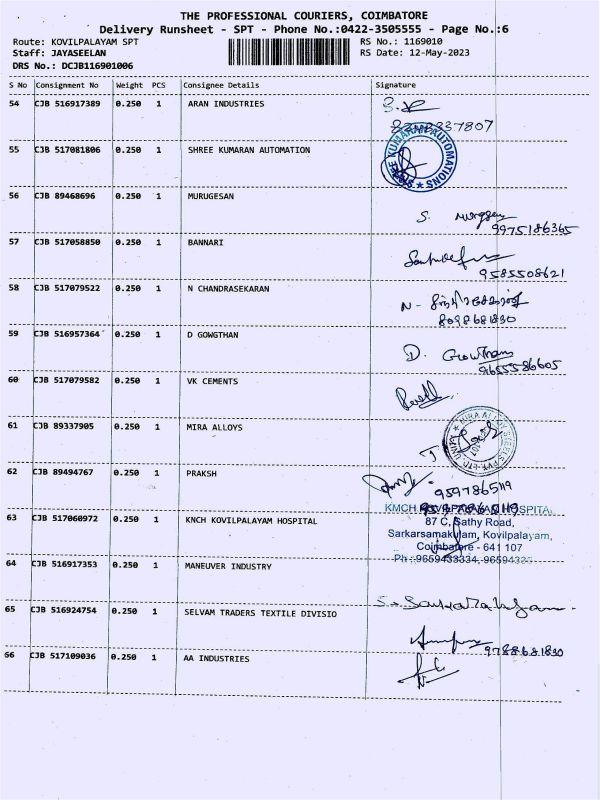 THE PROFESSIONAL COURIERS, COIMBATORE
Delivery Runsheet - SPT - Phone No.:0422-3505555 - Page No.:6
Route: KOVILPALAYAM SPT
RS No.: 1169010
Staff: JAYASEELAN
RS Date: 12-May-2023
DRS No.: DCJB116901006
S No Consignment No Weight PCS Consignee Details Signature
54 CJB 516917389 0.250 1 ARAN INDUSTRIES
55 CJB 517081806 0.250 1 SHREE KUMARAN AUTOMATION
SHREE KUMARAN AUTOMATIONS
56 CJB 89468696 0.250 1 MURUGESAN
9975186365
57 CJB 517058850 0.250 1 BANNARI
9585508621
58 CJB 517079522 0.250 1 N CHANDRASEKARAN
8098681830
59 CJB 516957364 0.250 1 D GOWGTHAN
D. Gowtham
9655586605
60 CJB 517079582 0.250 1 VK CEMENTS
61 CJB 89337905 0.250 1 MIRA ALLOYS
MIRA ALLOY STEELS PVT. LTD.
62 CJB 89494767 0.250 1 PRAKSH
9597865119
63 CJB 517060972 0.250 1 KNCH KOVILPALAYAM HOSPITAL
KMCH KOVILPALAYAM HOSPITA
87 C, Sathy Road,
Sarkarsamakulam, Kovilpalayam,
Coimbatore - 641 107
64 CJB 516917353 0.250 1 MANEUVER INDUSTRY
65 CJB 516924754 0.250 1 SELVAM TRADERS TEXTILE DIVISIO
9788681830
66 CJB 517109036 0.250 1 AA INDUSTRIES